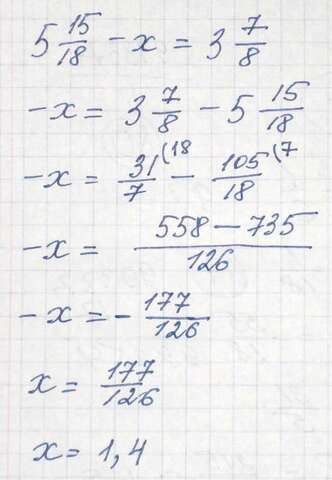 5 15/18 - x = 3 7/8
-x = 3 7/8 - 5 15/18
-x = 31/7 (18 - 105/18 (7
-x = 558 - 735/126
-x = - 177/126
x = 177/126
x = 1,4